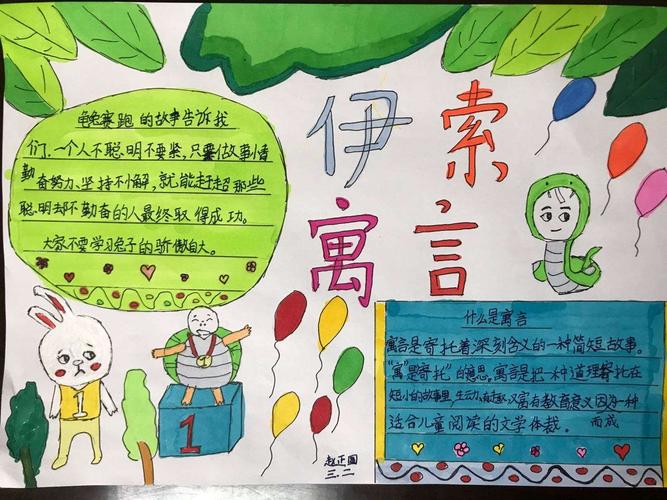 伊索
寓言
龟兔赛跑的故事告诉我
们.一个人不聪明不要紧,只要做事情
勤奋努力、坚持不懈,就能赶超那些
聪明却不勤奋的人最终取得成功。
大家不要学习兔子的骄傲自大。
什么是寓言
寓言是寄托着深刻含义的一种简短故事。
"寓"是寄托"的意思,寓言是把一种道理寄托在
短小的故事里,生动有趣又富有教育意义因为一种
适合儿童阅读的文学体裁。而成
1
1
赵正圆
三.二